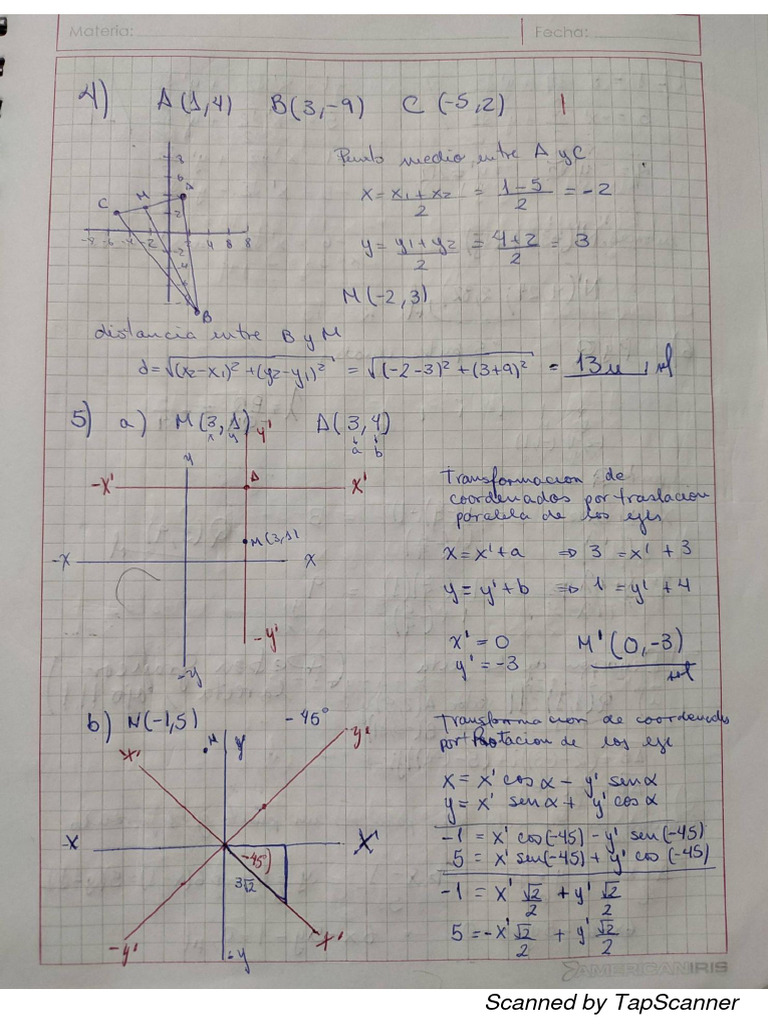 Materia:
Fecha:
4) A(1,4) B(3,-9) C(-5,2)
Punto medio entre A y C
x = x1+x2/2 = 1-5/2 = -2
y = y1+y2/2 = 4+2/2 = 3
M(-2,3)
distancia entre B y M
d=√(x2-x1)²+(y2-y1)² = √(-2-3)²+(3+9)² = 13u
5) a) M(3,1) A(3,4)
x y a b
Transformacion de
coordenados por traslacion
paralela de los ejes
x = x'+a => 3 = x'+3
y = y'+b => 1 = y'+4
x' = 0 M'(0,-3)
y' = -3
y y'
-x' A x'
M(3,1)
-x x
-y -y'
b) N(-1,5) -45°
Transformacion de coordenados
por Rotacion de los eje
x = x' cos α - y' sen α
y = x' sen α + y' cos α
-1 = x' cos(-45) - y' sen(-45)
5 = x' sen(-45) + y' cos(-45)
-1 = x' √2/2 + y' √2/2
5 = -x' √2/2 + y' √2/2
y y'
-x
-45°
3√2
-y' -y x'
AMERICAN IRIS
Scanned by TapScanner